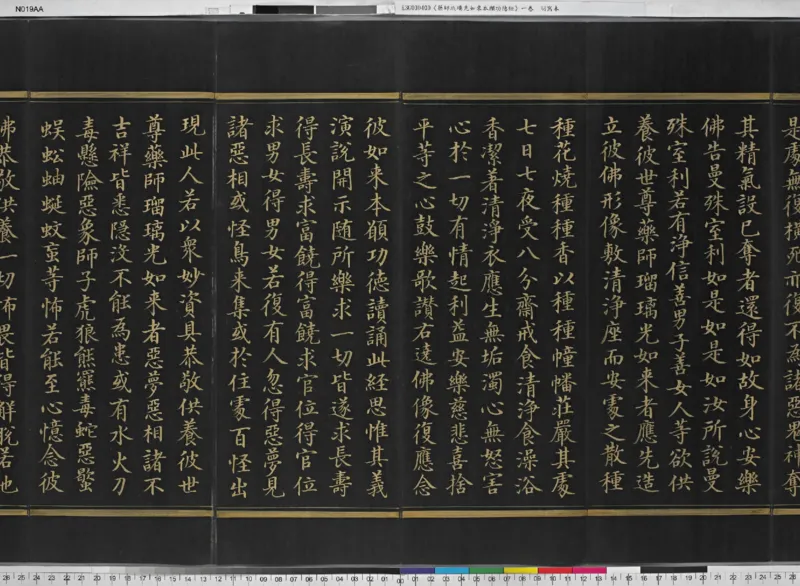 N019AA
《藥師琉璃光如來本願功德經》一卷
是處無復橫死亦復不為諸惡鬼神奪
其精氣設已奪者還得如故身心安樂
佛告曼殊室利如是如是如汝所說曼
殊室利若有淨信善男子善女人等欲供
養彼世尊藥師瑠璃光如来者應先造
立彼佛形像敷清淨座而安處之散種
種花燒種種香以種種幢幡莊嚴其處
七日七夜受八分齋戒食清淨食澡浴
香潔着清淨衣應生無垢濁心無怒害
心於一切有情起利益安樂慈悲喜捨
平等之心鼓樂歌讚右遶佛像復應念
彼如来本願功德讀誦此經思惟其義
演說開示隨所樂求一切皆遂求長壽
得長壽求富饒得富饒求官位得官位
求男女得男女若復有人忽得惡夢見
諸惡相或怪鳥来集或於住處百怪出
現此人若以衆妙資具恭敬供養彼世
尊藥師瑠璃光如来者惡夢惡相諸不
吉祥皆悉隱没不能為患或有水火刀
毒懸險惡象師子虎狼熊羆毒蛇惡蠍
蜈蚣蚰蜒蚊虻等怖若能至心憶念彼
佛恭敬供養一切怖畏皆得解脫若他